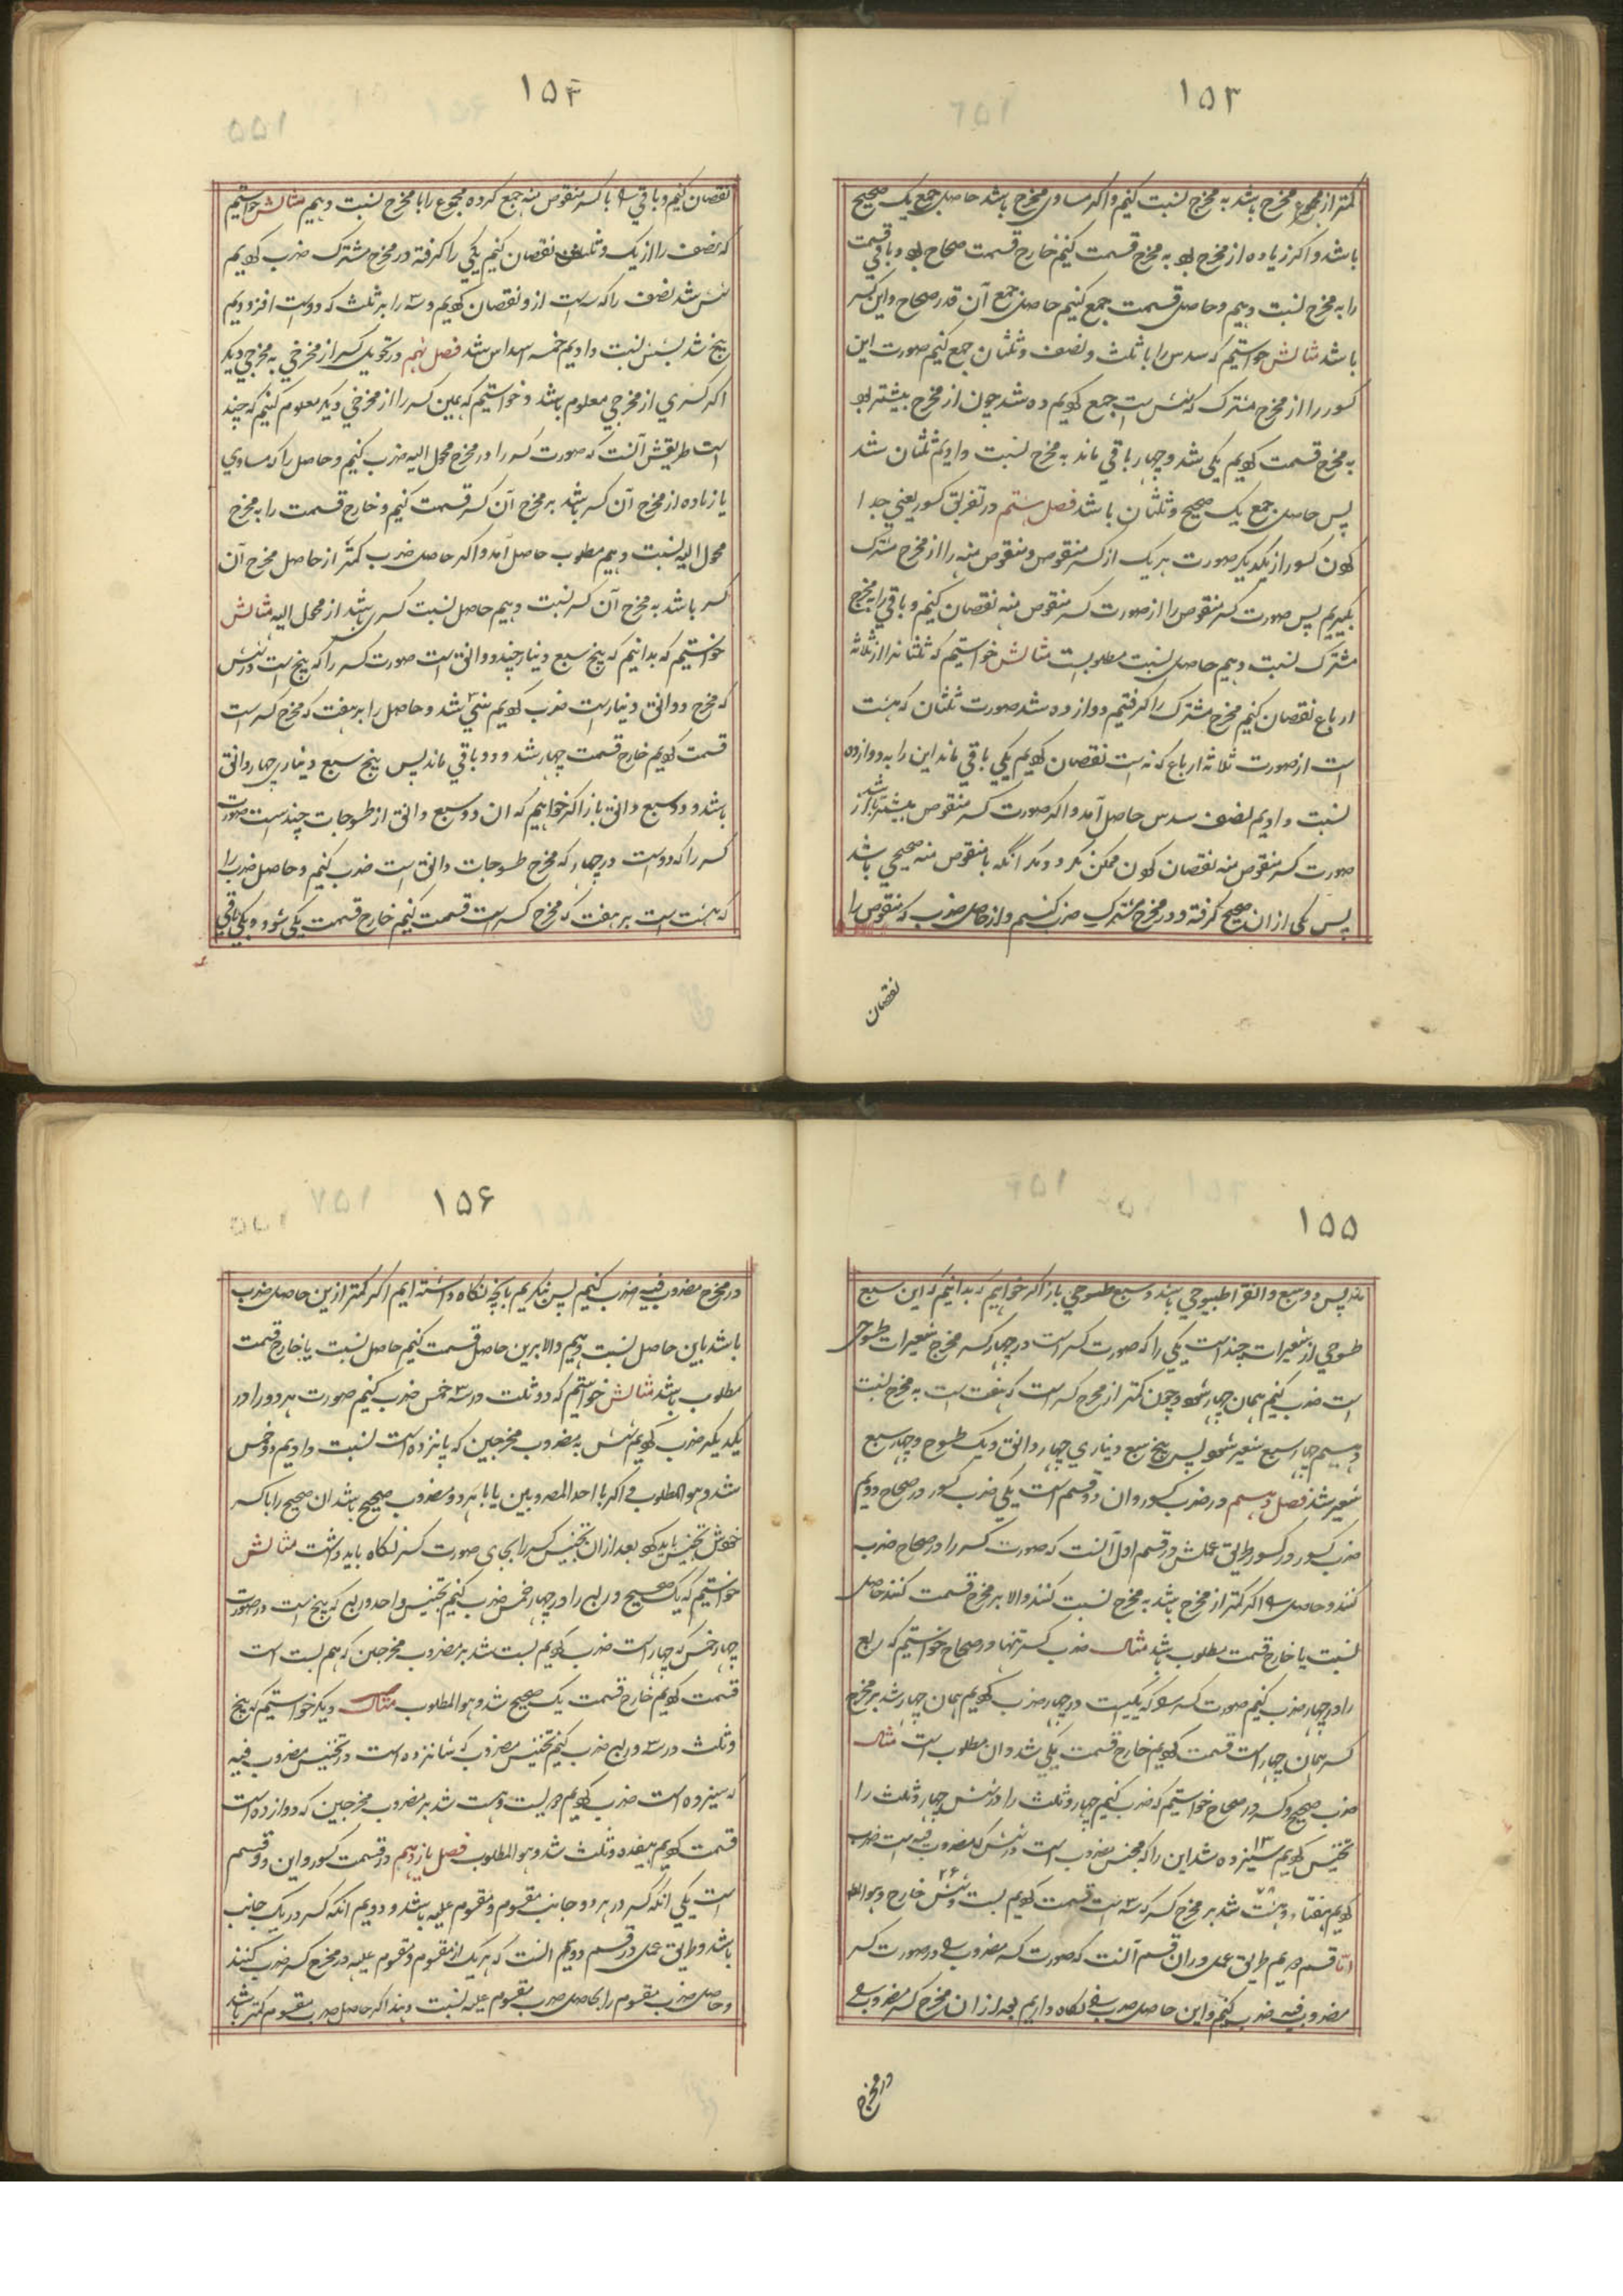 ۱۵۳
کمتر از مجموع مخرج باشد به مخرج نسبت کنیم و اکر مساوی مخرج باشد حاصل جمع یک صحیح
باشد و اکر زیاده از مخرج بود به مخرج قسمت کنیم خارج قسمت صحاح بود و باقی قسمت
را به مخرج نسبت دهیم و حاصل قسمت جمع کنیم حاصل جمع آن قدر صحاح و این کسر
باشد مثالش خواستیم که سدس را با ثلث و نصف و ثلثان جمع کنیم صورت این
کسور را از مخرج مشترک که شش است جمع کردیم ده شد چون از مخرج بیشتر بود
به مخرج قسمت کردیم یکی شد و چهار باقی ماند به مخرج نسبت دادیم ثلثان شد
پس حاصل جمع یک صحیح و ثلثان باشد فصل هشتم در تفریق کسور یعنی جدا
کردن کسور از یکدیکر صورت هر یک از کسر منقوص و منقوص منه را از مخرج مشترک
بکیریم پس صورت کسر منقوص را از صورت کسر منقوص منه نقصان کنیم و باقی را به مخرج
مشترک نسبت دهیم حاصل نسبت مطلوبست مثالش خواستیم که ثلثان را از ثلاثة
ارباع نقصان کنیم مخرج مشترک را کرفتیم دوازده شد صورت ثلثان که هشت
است از صورت ثلاثه ارباع که نه است نقصان کردیم یکی باقی ماند این را به دوازده
نسبت دادیم نصف سدس حاصل آمد و اکر صورت کسر منقوص بیشتر باشد از
صورت کسر منقوص منه نقصان کردن ممکن نکردد مکر آنکه با منقوص منه صحیحی باشد
پس یکی از ان صحیح کرفته و در مخرج مشترک ضرب کنیم و از حاصل ضرب کسر منقوص را
نقصان
۱۵۴
نقصان کنیم و باقی را با کسر منقوص منه جمع کرده مجموع را با مخرج نسبت دهیم مثالش خواستیم
که نصف را از یک و ثلث نقصان کنیم یکی را کرفته در مخرج مشترک ضرب کردیم
شش شد نصف را که ۳ است ازو نقصان کردیم و ۳ را بر ثلث که دو است افزودیم
پنج شد بشش نسبت دادیم خمسه اسداس شد فصل نهم در تحویل کسر از مخرجی به مخرجی دیکر
اکر کسری از مخرجی معلوم باشد و خواستیم که همین کسر را از مخرجی دیکر معلوم کنیم که چند
است طریقش آنست که صورت کسر را در مخرج محول الیه ضرب کنیم و حاصل را که مساوی
یا زیاده از مخرج آن کسر باشد بر مخرج آن کسر قسمت کنیم و خارج قسمت را به مخرج
محول الیه نسبت دهیم مطلوب حاصل آمد و اکر حاصل ضرب کمتر از حاصل مخرج آن
کسر باشد به مخرج آن کسر نسبت دهیم حاصل نسبت کسری باشد از محول الیه مثالش
خواستیم که بدانیم که پنج سبع دینار چند دوانق است صورت کسر را که پنج است در شش
که مخرج دوانق دینار است ضرب کردیم سی شد و حاصل را بر هفت که مخرج کسر است
قسمت کردیم خارج قسمت چهار شد و دو باقی ماند پس پنج سبع دیناری چهار دانق
باشد و دو سبع دانق باز اکر خواهیم که ان دو سبع دانق از طسوجات چندست صورت
کسر را که دو است در چهار که مخرج طسوجات دانق است ضرب کنیم و حاصل ضرب را
که هشت است بر هفت که مخرج کسر است قسمت کنیم خارج قسمت یکی شود و یکی باقی
۱۵۵
ماند پس دو سبع دانق طسوجی باشد و سبع طسوجی باز اکر خواهیم که بدانیم که این سبع
طسوجی از شعیرات چند است یکی را که صورت کسر است در چهار که مخرج شعیرات طسوجی
است ضرب کنیم همان چهار شود و چون کمتر از مخرج کسر است که هفت است به مخرج نسبت
دهیم چهار سبع شعیر شود پس پنج سبع دیناری چهار دانق و یک طسوج و چهار سبع
شعیر شد فصل دهم در ضرب کسور و ان دو قسم است یکی ضرب کسور در صحاح دویم
ضرب کسور در کسور طریق عملش در قسم اول آنست که صورت کسر را در صحاح ضرب
کنند و حاصل را اکر کمتر از مخرج باشد به مخرج نسبت کنند والا بر مخرج قسمت کنند حاصل
نسبت یا خارج قسمت مطلوب باشد مثال ضرب کسر تنها در صحاح خواستیم که ربع
را در چهار ضرب کنیم صورت کسر را که یکیست در چهار ضرب کردیم همان چهار شد بر مخرج
کسر همان چهار است قسمت کردیم خارج قسمت یکی شد و ان مطلوب است مثال
ضرب صحیح و کسر در صحاح خواستیم که ضرب کنیم چهار و ثلث را در شش چهار و ثلث را
تجنیس کردیم سیزده ۱۳ شد این را که مجنس مضروب است در شش که مضروب فیه است ضرب
کردیم هفتاد و هشت ۷۸ شد بر مخرج کسر که ۳ است قسمت کردیم بست و شش ۲۶ خارج و هو المط
اما قسم دویم طریق عمل در ان قسم آنست که صورت کسر مضروب را در صورت کسر
مضروب فیه ضرب کنیم و این حاصل ضرب را نکاه داریم بعد از ان مخرج کسر مضروب را
در مخرج
۱۵۶
در مخرج مضروب فیه ضرب کنیم پس بنکریم بانچه نکاه داشته ایم اکر کمتر ازین حاصل ضرب
باشد باین حاصل نسبت دهیم والا برین حاصل قسمت کنیم حاصل نسبت یا خارج قسمت
مطلوب باشد مثالش خواستیم که دو ثلث در ۳ خمس ضرب کنیم صورت هر دو را در
یکدیکر ضرب کردیم شش به مضروب مخرجین که پانزده است نسبت دادیم دو خمس
شد و هو المطلوب و اکر با احد المضروبین یا با هر دو مضروب صحیح باشد ان صحیح را با کسر
خودش تجنیس باید کرد بعد از ان تجنیس کسر را بجای صورت کسر نکاه باید داشت مثالش
خواستیم که یک صحیح و ربع را در چهار خمس ضرب کنیم تجنیس واحد و ربع که پنج است در صورت
چهار خمس که چهار است ضرب کردیم بست شد بر مضروب مخرجین که هم بست است
قسمت کردیم خارج قسمت یک صحیح شد و هو المطلوب مثال دیکر خواستیم که پنج
و ثلث در ۳ و ربع ضرب کنیم تجنیس مضروب که شانزده است در تجنیس مضروب فیه
که سیزده است ضرب کردیم دویست و هشت شد بر مضروب مخرجین که دوازده است
قسمت کردیم هفده و ثلث شد و هو المطلوب فصل یازدهم در قسمت کسور و این دو قسم
است یکی انکه کسر در هر دو جانب مقسوم و مقسوم علیه باشد و دویم انکه کسر در یک جانب
باشد و طریق عمل در قسم دویم انست که هر یک از مقسوم و مقسوم علیه در مخرج کسر ضرب کنند
و حاصل ضرب مقسوم را بحاصل ضرب مقسوم علیه نسبت دهند اکر حاصل ضرب مقسوم کمتر باشد